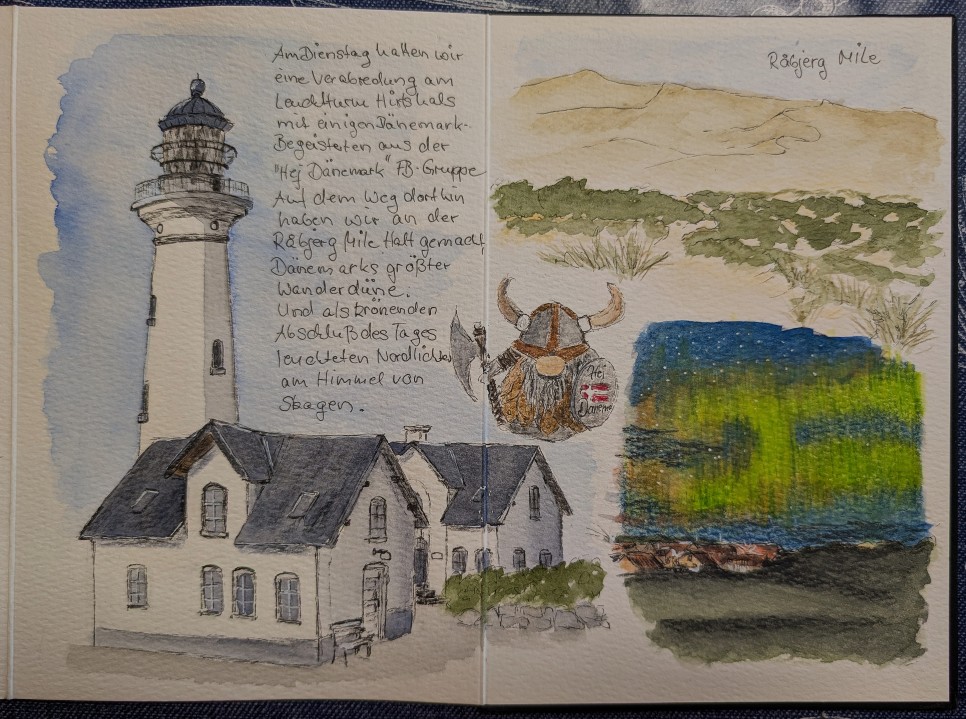 Am Dienstag hatten wir
eine Verabredung am
Leuchtturm Hirtshals
mit einigen Dänemark-
Begeisterten aus der
"Hej Dänemark" FB-Gruppe
Auf dem Weg dorthin
haben wir an der
Råbjerg Mile Halt gemacht,
Dänemarks größter
Wanderdüne.
Und als krönenden
Abschluß des Tages
leuchteten Nordlichter
am Himmel von
Skagen.
Råbjerg Mile
Hej